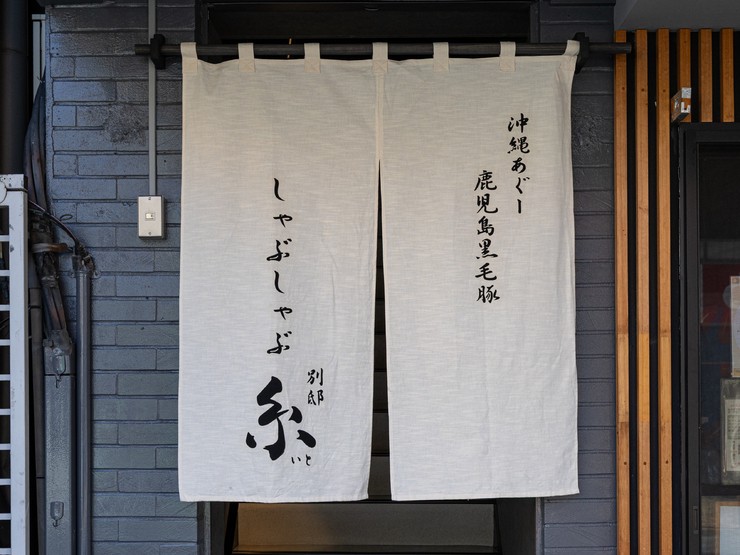 沖縄あぐー
鹿児島黒毛豚
しゃぶしゃぶ
別邸
糸
いと